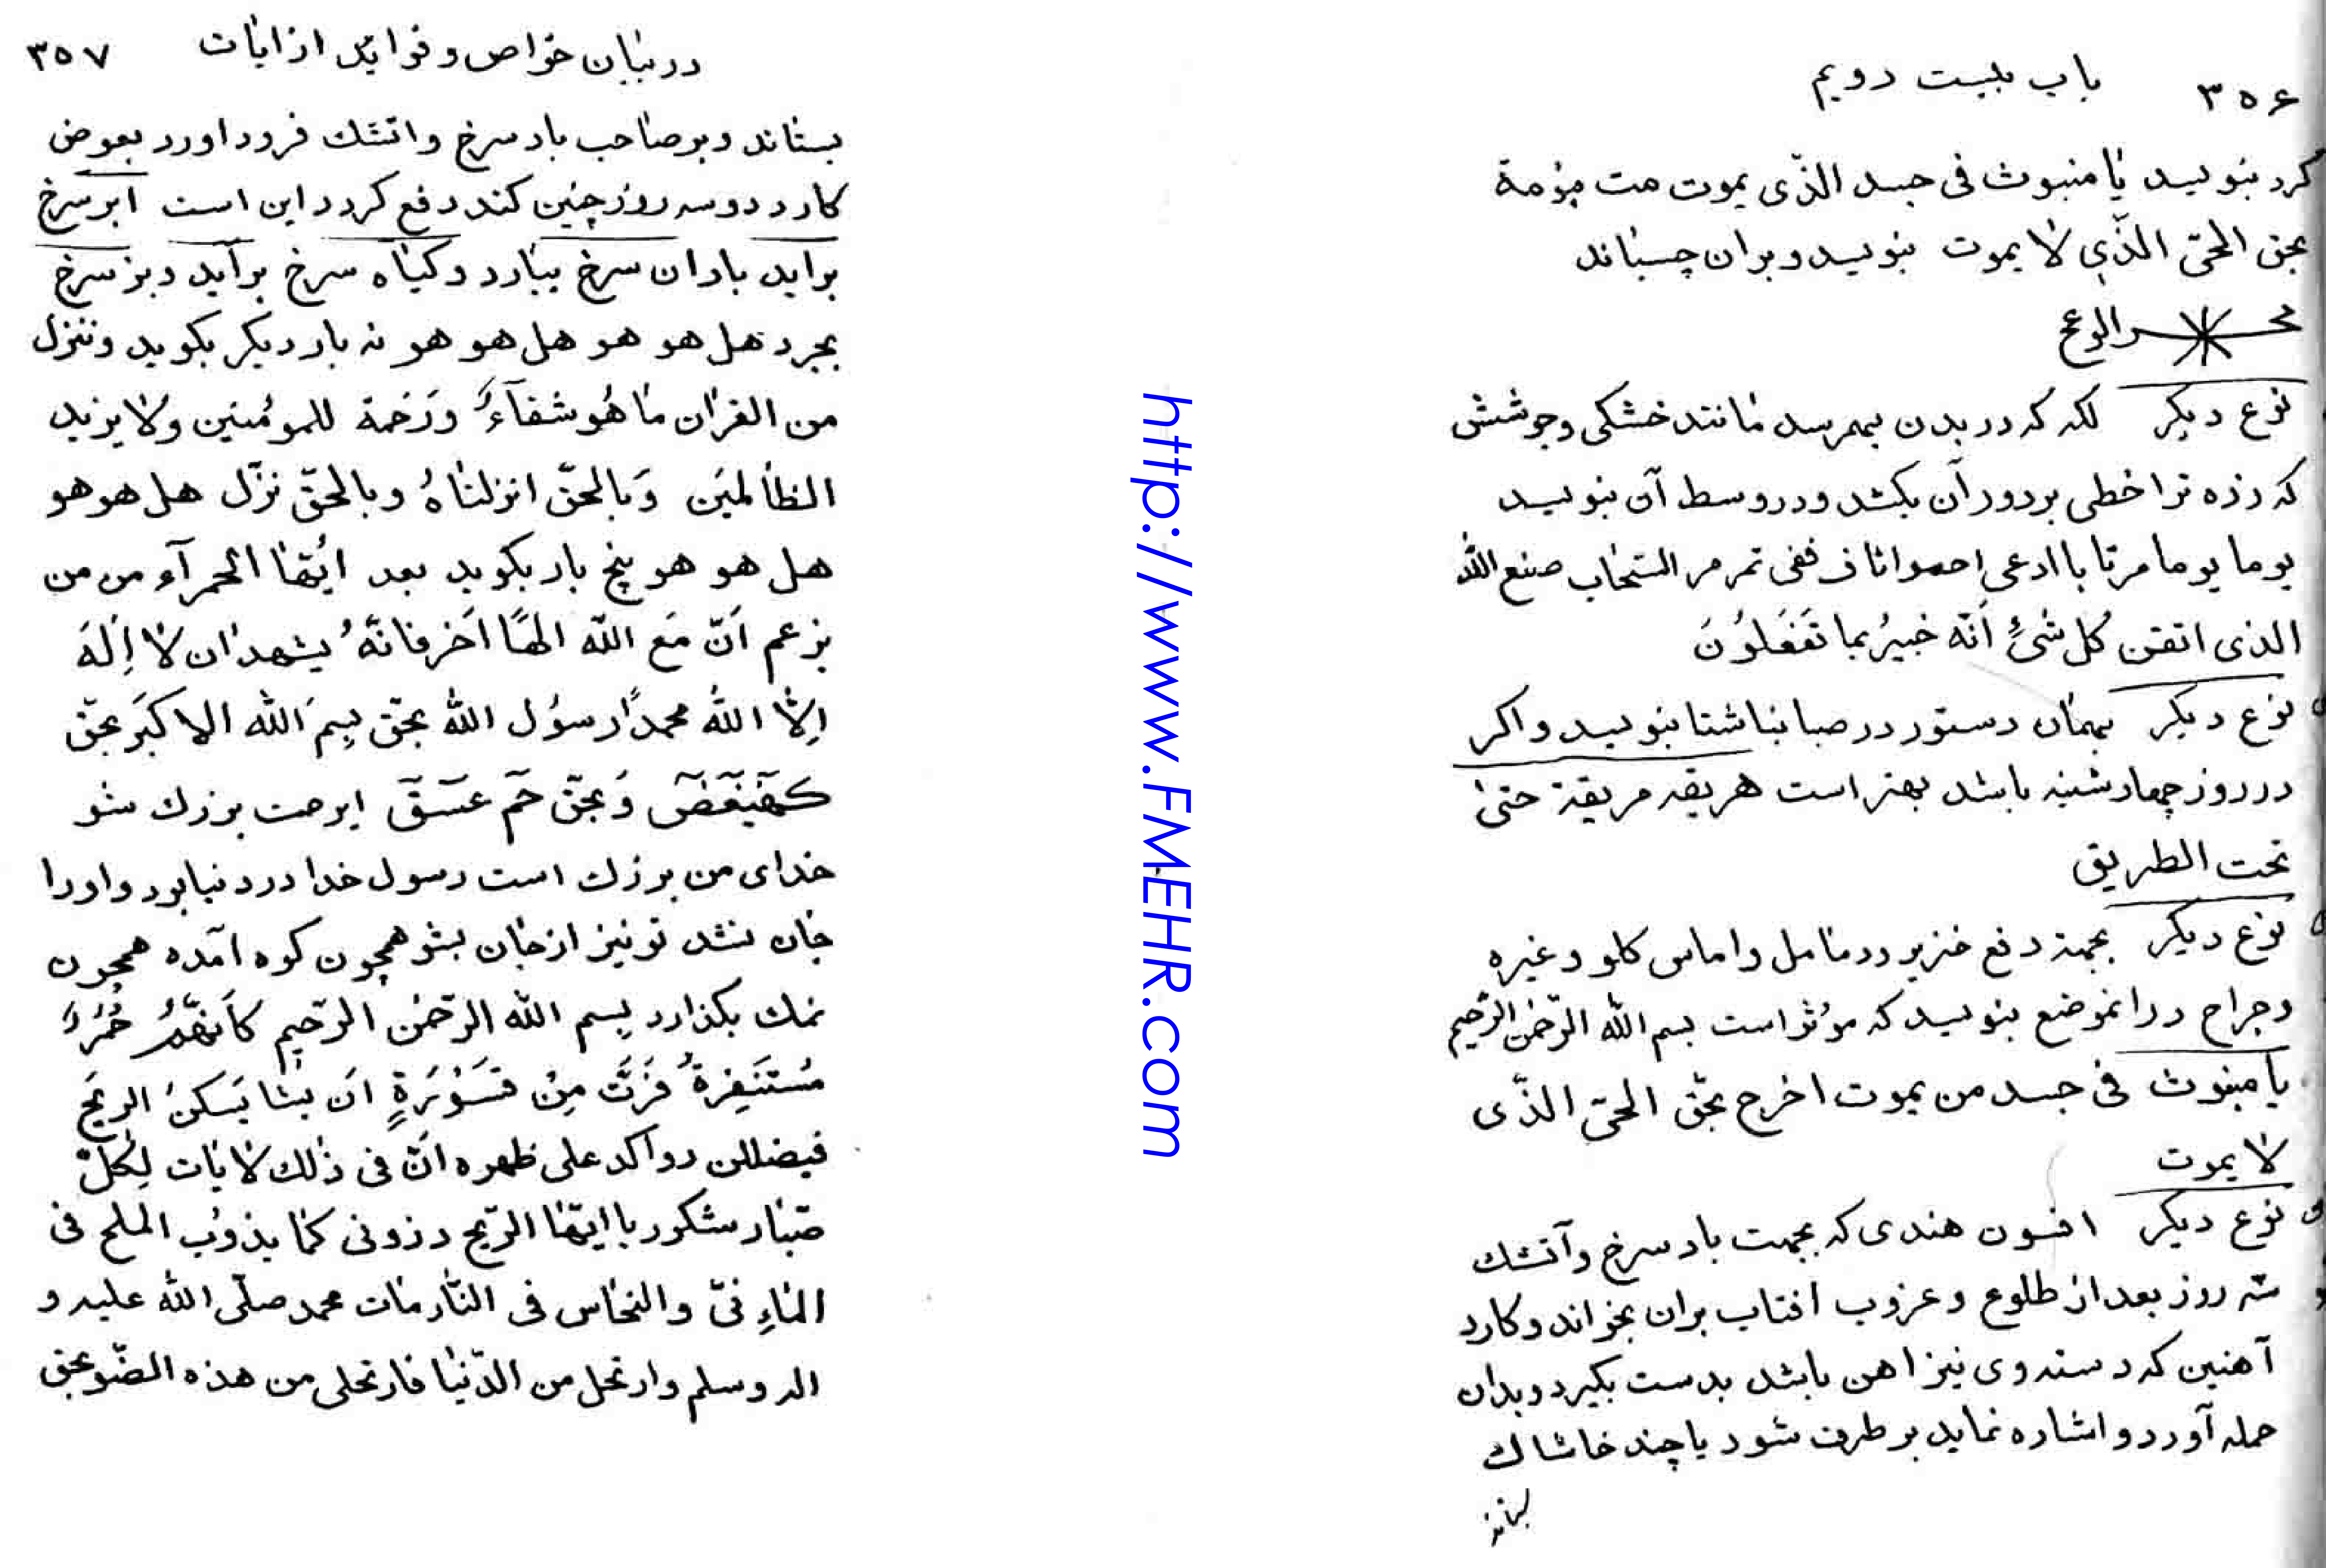 ۳۵۶ باب بیست دویم
کرد بنویسد یا منبوث فی جسد الذّی یموت مت بؤمة
بحق الحیّ الذّی لا یموت بنویسد و بران چسباند
نوع دیکر لکه که در بدن بهمرسد مانند خشکی و جوشش
که رزه ترا خطی بر دور آن بکشد و در وسط آن بنویسد
یوما یوما مرتا با ادعی تمر مر السّحاب صنع اللّه
الذی اتقن کُل شیٍ اَنّه خبیرُ بما تَفعَلوُنَ
نوع دیکر بهمان دستور در صبا بناشتا بنویسد و اکر
در روز چهارشنبه باشد بهتر است هریقه مریقة حتیٰ
تحت الطریق
نوع دیکر بجهة دفع خنزیر و دمامل و اماس کلو و غیره
و جراح در انموضع بنویسد که مؤثر است بسم اللّه الرّحمٰن الرّحیم
یا مبنوث فی جسد من یموت اخرج بحقّ الحیّ الذّی
لا یموت
نوع دیکر افسون هندی که بجهت باد سرخ و آتشك
سه روز بعد از طلوع و غروب افتاب بران بخواند و کارد
آهنین که دسته وی نیز اهن باشد بدست بکیرد و بدان
حمله آورد و اشاره نماید بر طرف شود یا چند خاشاك
http://www.FMEHR.com
در بیان خواص و فواید از ایات ۳۵۷
بستاند و بر صاحب باد سرخ و اتشك فرود اورد بعوض
کارد دو سه روز چنین کند دفع کردد این است ابر سرخ
براید باران سرخ ببارد و کیاه سرخ برآید و بز سرخ
بچرد هل هو هو هل هو هو نه بار دیکر بکوید و ننزل
من القرٰان ما هُو شفآءٌ وَرَحمة للمومُنین و لا یزید
الظالمیَن وَبالحقّ انزلناهُ و بالحقّ نزّل هل هو هو
هل هو هو پنج بار بکوید بعد ایُّها الحمرآء من من
یزعم اَنّ مَع اللّه الهًا اَخر فانّهُ یشهد ان لا اِلٰهَ
اِلّا اللّه محمدًا رسوُل اللّه بحقّ بِسمِ اللّه الاکبَر بحقّ
کٓهٰیٰعٓصٓ وَبحقّ حٓم عٓسٓقٓ ابرصت بزرك شو
خدای من بزرك است رسول خدا در دنیا بود و اورا
جان نشد تو نیز از جان بشو همچون کوه امده همچون
نمك بکذارد بسم اللّه الرّحمٰن الرّحیم کاَنّهُمُ حُمُرٌ
مُستَنفِرةٌ فَرَّت مِن قسَوَرَةٍ اَن یشا یَسکنُ الریحَ
فیضللن رواکد علی ظهره انّ فی ذٰلك لایات لِکُلِّ
صَبّار شکور یا ایتها الرّیح دزونی کما یذوُب الملح فی
الماءِ فیّ والنحّاس فی النّار مٰات محمد صلّی اللّه علیه و
اله و سلم وارتحل من الدّنیا فارتحلی من هذه الضّو بحق